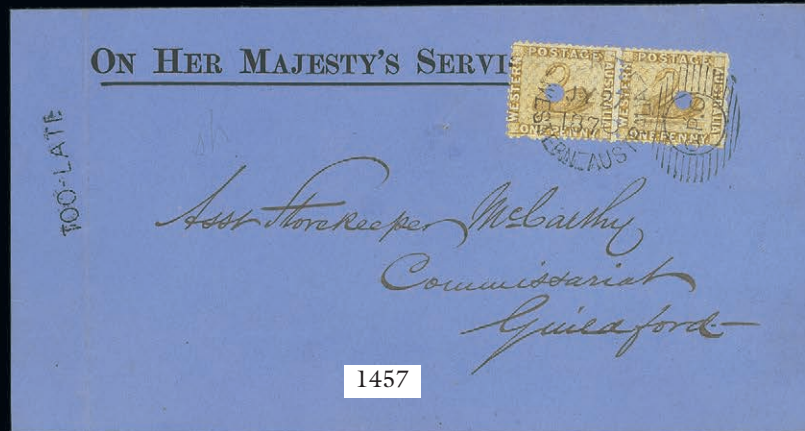 ON HER MAJESTY'S SERVI
POSTAGE
WESTERN
AUSTRALIA
ONE PENNY
POSTAGE
WESTERN
AUSTRALIA
ONE PENNY
WESTERN AUST
GPO
TOO-LATE
Asst Storekeeper McCarthy
Commissariat
Guildford
1457